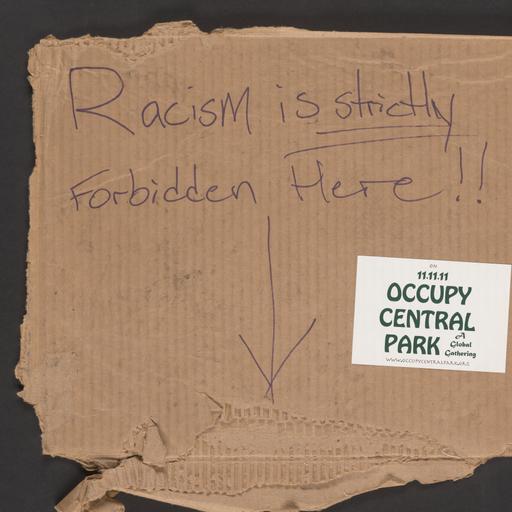 Racism is strictly
Forbidden Here!!
ON
11.11.11
OCCUPY
CENTRAL
PARK A
Global
Gathering
WWW.OCCUPYCENTRALPARK.ORG